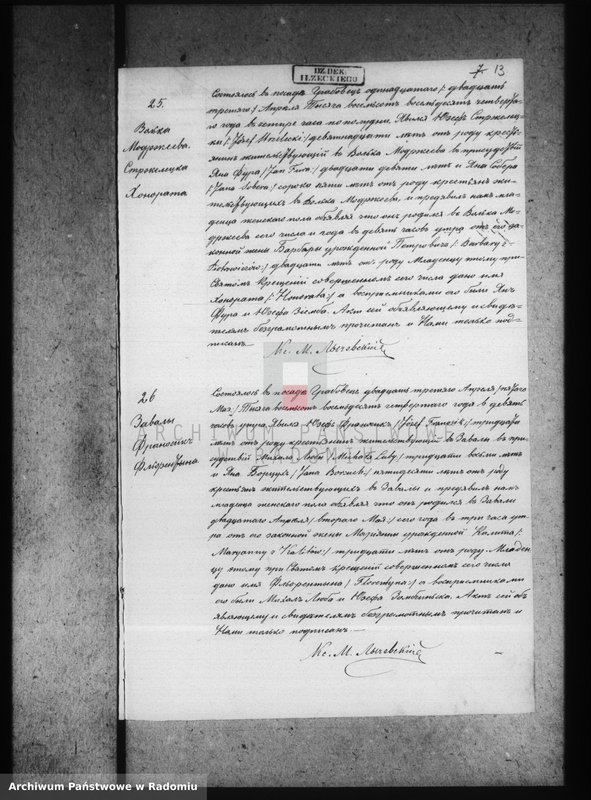 7 13
DZ.DEK.
IŁŻECKIEGO
25.
Волька
Модржеева.
Стржелецка
Хонората
Состоялось въ посадѣ Грабовецъ одинадцатаго /: двадцать
третьяго :/ Апрѣля Тысяча восемьсотъ восемьдесятъ четверта-
го года въ четыре часа по полудни. Явился Юзефъ Стржелец-
кій /: Józef Strzelecki :/ девятнадцати лѣтъ отъ роду кресть-
янинъ жительствующій въ Волька Модржева въ присутствіи
Яна Фура /: Jan Fura :/ двадцати девяти лѣтъ и Яна Собера
/: Jana Sobera :/ сорока пяти лѣтъ отъ роду крестьянъ жи-
тельствующихъ въ Волька Модржева, и предъявилъ намъ мла-
денца женскаго пола объявляя что онъ родился въ Волька Мо-
држеева сего числа и года въ девять часовъ утра отъ его за-
конной жены Барбары урожденной Петровичъ /: Barbary z
Pietrowiczów :/ двадцати лѣтъ отъ роду. Младенцу этому при
Святомъ Крещеніи совершенномъ сего числа дано имя
Хонората /: Honorata :/ а воспреемниками его были Янъ
Фура и Юзефа Зіомба. Актъ сей объявляющему и свидѣ-
телямъ безграмотнымъ прочитанъ и Нами только под-
писанъ.
Кс. М. Лычевскій
26
Завалы
Франчикъ
Флорентына
Состоялось въ посадѣ Грабовецъ двадцать третьяго Апрѣля /: пятаго
Мая :/ Тысяча восемьсотъ восемьдесятъ четвертаго года въ девять
часовъ утра. Явился Юзефъ Франчикъ /: Józef Franczik :/ тридцати
лѣтъ отъ роду крестьянинъ жительствующій въ Завалы въ при-
сутствіи Михала Любы /: Michała Luby :/ тридцати восьми лѣтъ
и Яна Борцухъ /: Jana :/ пятидесяти лѣтъ отъ роду
крестьянъ жительствующихъ въ Завалы и предъявилъ намъ
младенца женскаго пола объявляя что онъ родился въ Завалы
двадцатаго Апрѣля /: втораго Мая :/ сего года въ три часа ут-
ра отъ его законной жены Маріанны урожденной Калита /:
Maryanny z Kalitów :/ тридцати лѣтъ отъ роду. Младен-
цу этому при Святомъ крещеніи совершенномъ сего числа
дано имя Флорентына /: Florentyna :/ а воспреемниками
его были Михалъ Люба и Юзефа. Актъ сей объ-
являющему и свидѣтелямъ безграмотнымъ прочитанъ и
Нами только подписанъ.
Кс. М. Лычевскій
ARCHIWUM PAŃSTWOWE
W RADOMIU
Archiwum Państwowe w Radomiu